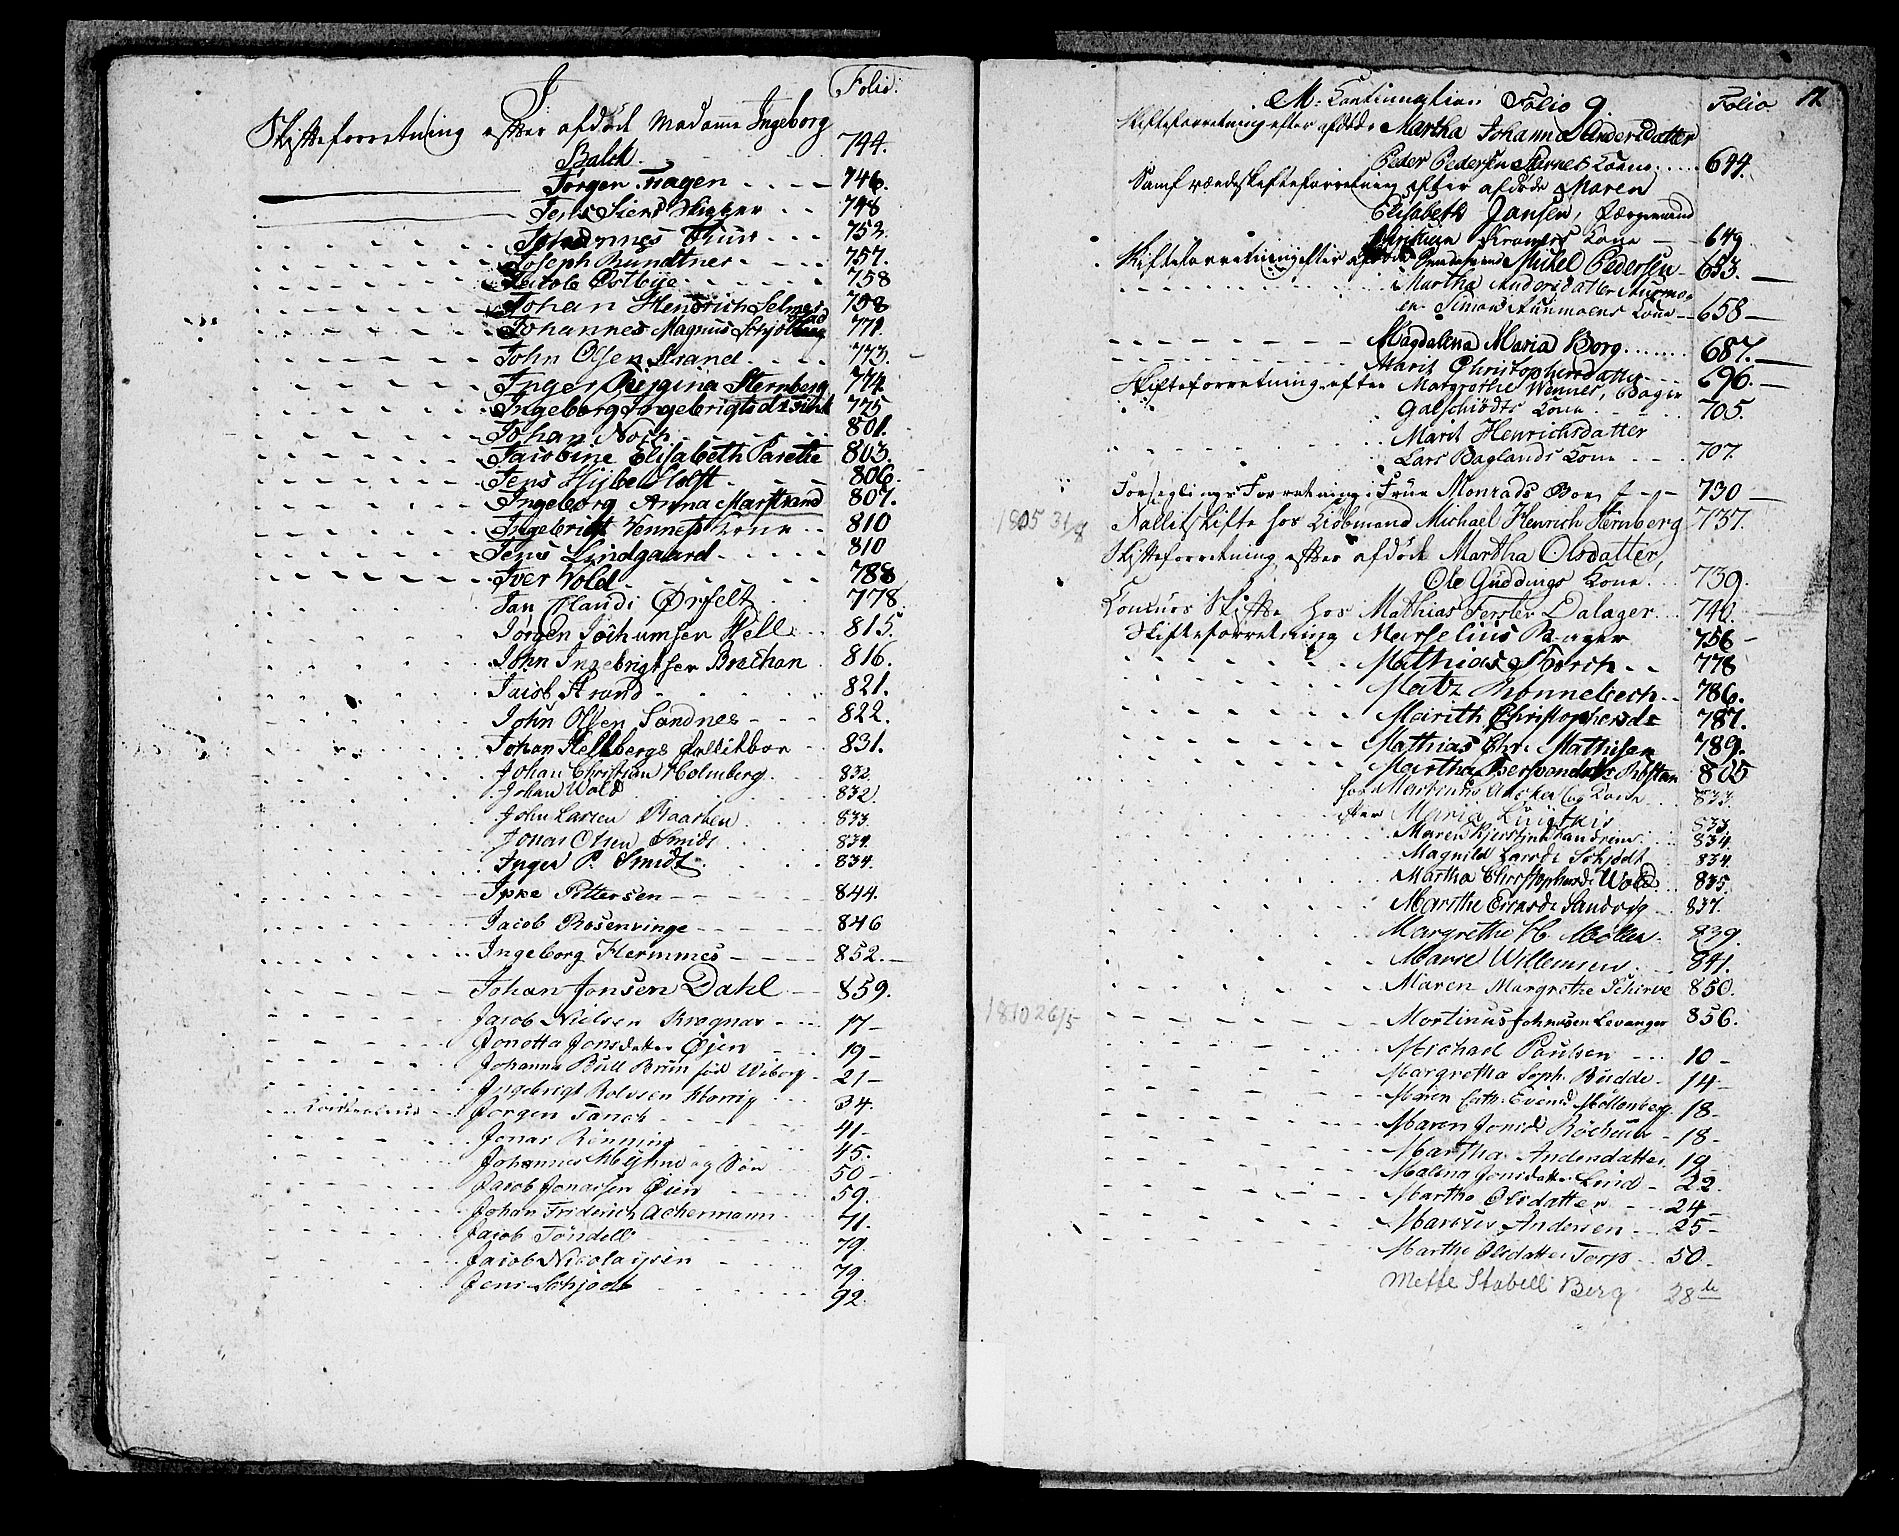 J: Folio:
Skifteforretning efter afdöde Madame Ingeborg
Balch. 744.
Jörgen Hagen 746.
Jens 748
Johannes 753.
Joseph Bundtner 757.
Jacob Östbye 758
Johan Hendrich Selmer 758
Johannes Magnus Schjölberg 771.
John Olsen Strand 773.
Inger Regina Sternberg 774.
Ingeborg Ingebrigtsd 775
Johan Noch 801.
Jacobine Elisabeth Parelie 803.
Jens Holst 806.
Ingeborg Anna Marstrand 807.
Ingebrigt Vennes Kone 810
Jens Lindgaard 810
Iver Vold 788
Jan Örfelt 778
Jörgen Jochumsen Hell 815.
John Ingebrigtsen Brechan 816.
Jacob Strand 821.
John Olsen Sandnes 822.
Johan Hellbergs fallitboe 831.
Johan Christian Holmberg 832.
Johan Wold 832.
John Larsen Raaaen 833.
Jonas Olsen Smidt 834.
Inger P. Smidt 834.
Ipke Pettersen 844.
Jacob Rosenvinge 846
Ingeborg Hermmes 852.
Johan Jonsen Dahl 859.
Jacob Nielsen Kragnas 17
Jonetta Jonsdatter Öjen 19
Johanna Bull Bruun föd Wiborg 21
Ingebrigt Rolvsen 34.
Jörgen Tanck 41
Jonas Rönning 45.
Johannes og Sön 50
Jacob Jonassen Öien 59.
Johan Friderich Achermann 71.
Jacob Töndell 79.
Jacob Nicolaysen 79.
Jens Schjödt 92.
M. Continuation Folio 9. Folio 12
Skifteforretning efter afdöde Martha Johanna Andersdatter
Peder Pedersen Kone 644.
Samfrændeskifteforretning efter afdöde Maren
Elisabeth Jansen, Færgemand
Kramers Kone 649
Skifteforretning efter afdöde Mikel Pedersen 653.
Martha Andersdatter Aunmo
en Simon Aunmoens Kone 658
Magdalena Maria Borg 687.
Marit Christophersdatter 696.
Skifteforretning efter Margrethe Wennes, Bager
Galschiödts Kone 705.
Marit Henrichsdatter
Lars Baglands Kone 707.
Forseglings Forretning i Frue Monrads Boe 730
1805 31/8 Fallitskifte hos Kiöbmand Michael Henrich Sternberg 737.
Skifteforretning efter afdöde Martha Olsdatter,
Ole Guddings Kone 739.
Concurs Skifte hos Mathias Ferslev Dalager 740.
Skifteforretning Marselius Bager 756
Mathias Storch 778
Matz Rönnebech 786.
Marith Christophersdr 787.
Mathias Chr. Mathisen 789.
Martha Röstan 805
hos Martinus Ancker og Kone 833.
efter Maria 833
Maren Kjerstine 834.
Magnild Larsdr Schjödt 834.
Martha Christophersdr Wold 835.
Marthe Ericsdr Sandvig 837.
Margrethe H. Möller 839.
Marie Willumsen 841.
Maren Margrethe Schirve 850.
1810 26/5 Mortinus Johnsen Levanger 856.
Michael Paulsen 10
Margretha Soph. Budde 14
Maren Cath. Evensd Mollenberg 18
Maren Jonsdr 18
Martha Andersdatter 19
Malena Jonsdatter Lind 22.
Martha Olsdatter 24
Marcus Andersen 25
Marthe Olsdatter Torp 50
Mette Stabell Berg 28 de